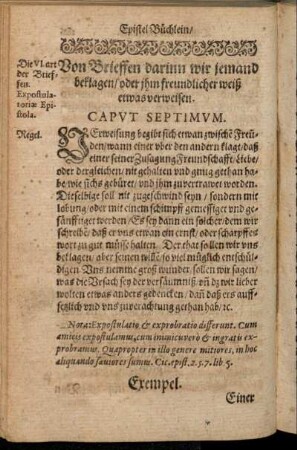 Epistel Büchlein/
Die VI. art
der Brief-
fen.
Expostula-
toriæ Epi-
stola.
Von Brieffen darinn wir jemand
beklagen/ oder jhm freundlicher weiß
etwas verweisen.
CAPVT SEPTIMVM.
Regel.
VErweisung begibt sich etwan zwischẽ Freün-
den/ wann einer vber den andern klagt/ daß
einer seiner Zusagung Freundschafft/ Liebe/
oder dergleichen/ nit gehalten vnd gnüg gethan ha-
be wie sichs gebüret/ vnd jhm zuvertrawet worden.
Dieselbige soll nit zugeschwind seyn/ sondern mit
lobung/ oder mit einem schimpff gemessiget vnd ge-
sänfftiget werden/ Es sey dann ein solcher/ dem wir
schreibẽ/ daß er vns etwan ein ernst/ oder scharpffes
wort zu gut müsse halten. Der that sollen wir vns
beklagen/ aber seinen willẽ/ so viel müglich entschül-
digen. Vns nemme groß wunder/ sollen wir sagen/
was die Vrsach sey der versäumniß. vñ dz wir lieber
wolten etwas anders gedencken/ dañ daß ers auff-
setzlich vnd vns zuverachtung gethan hab/ ꝛc.
Nota: Expostulatio & exprobratio differunt. Cum
amicis expostulamus, cum inimicis verò & ingratis ex-
probramus. Quapropter in illo genere mitiores, in hoc
aliquando sæviores sumus. Cic. epist. 257. lib. 5.
Exempel.
Einer